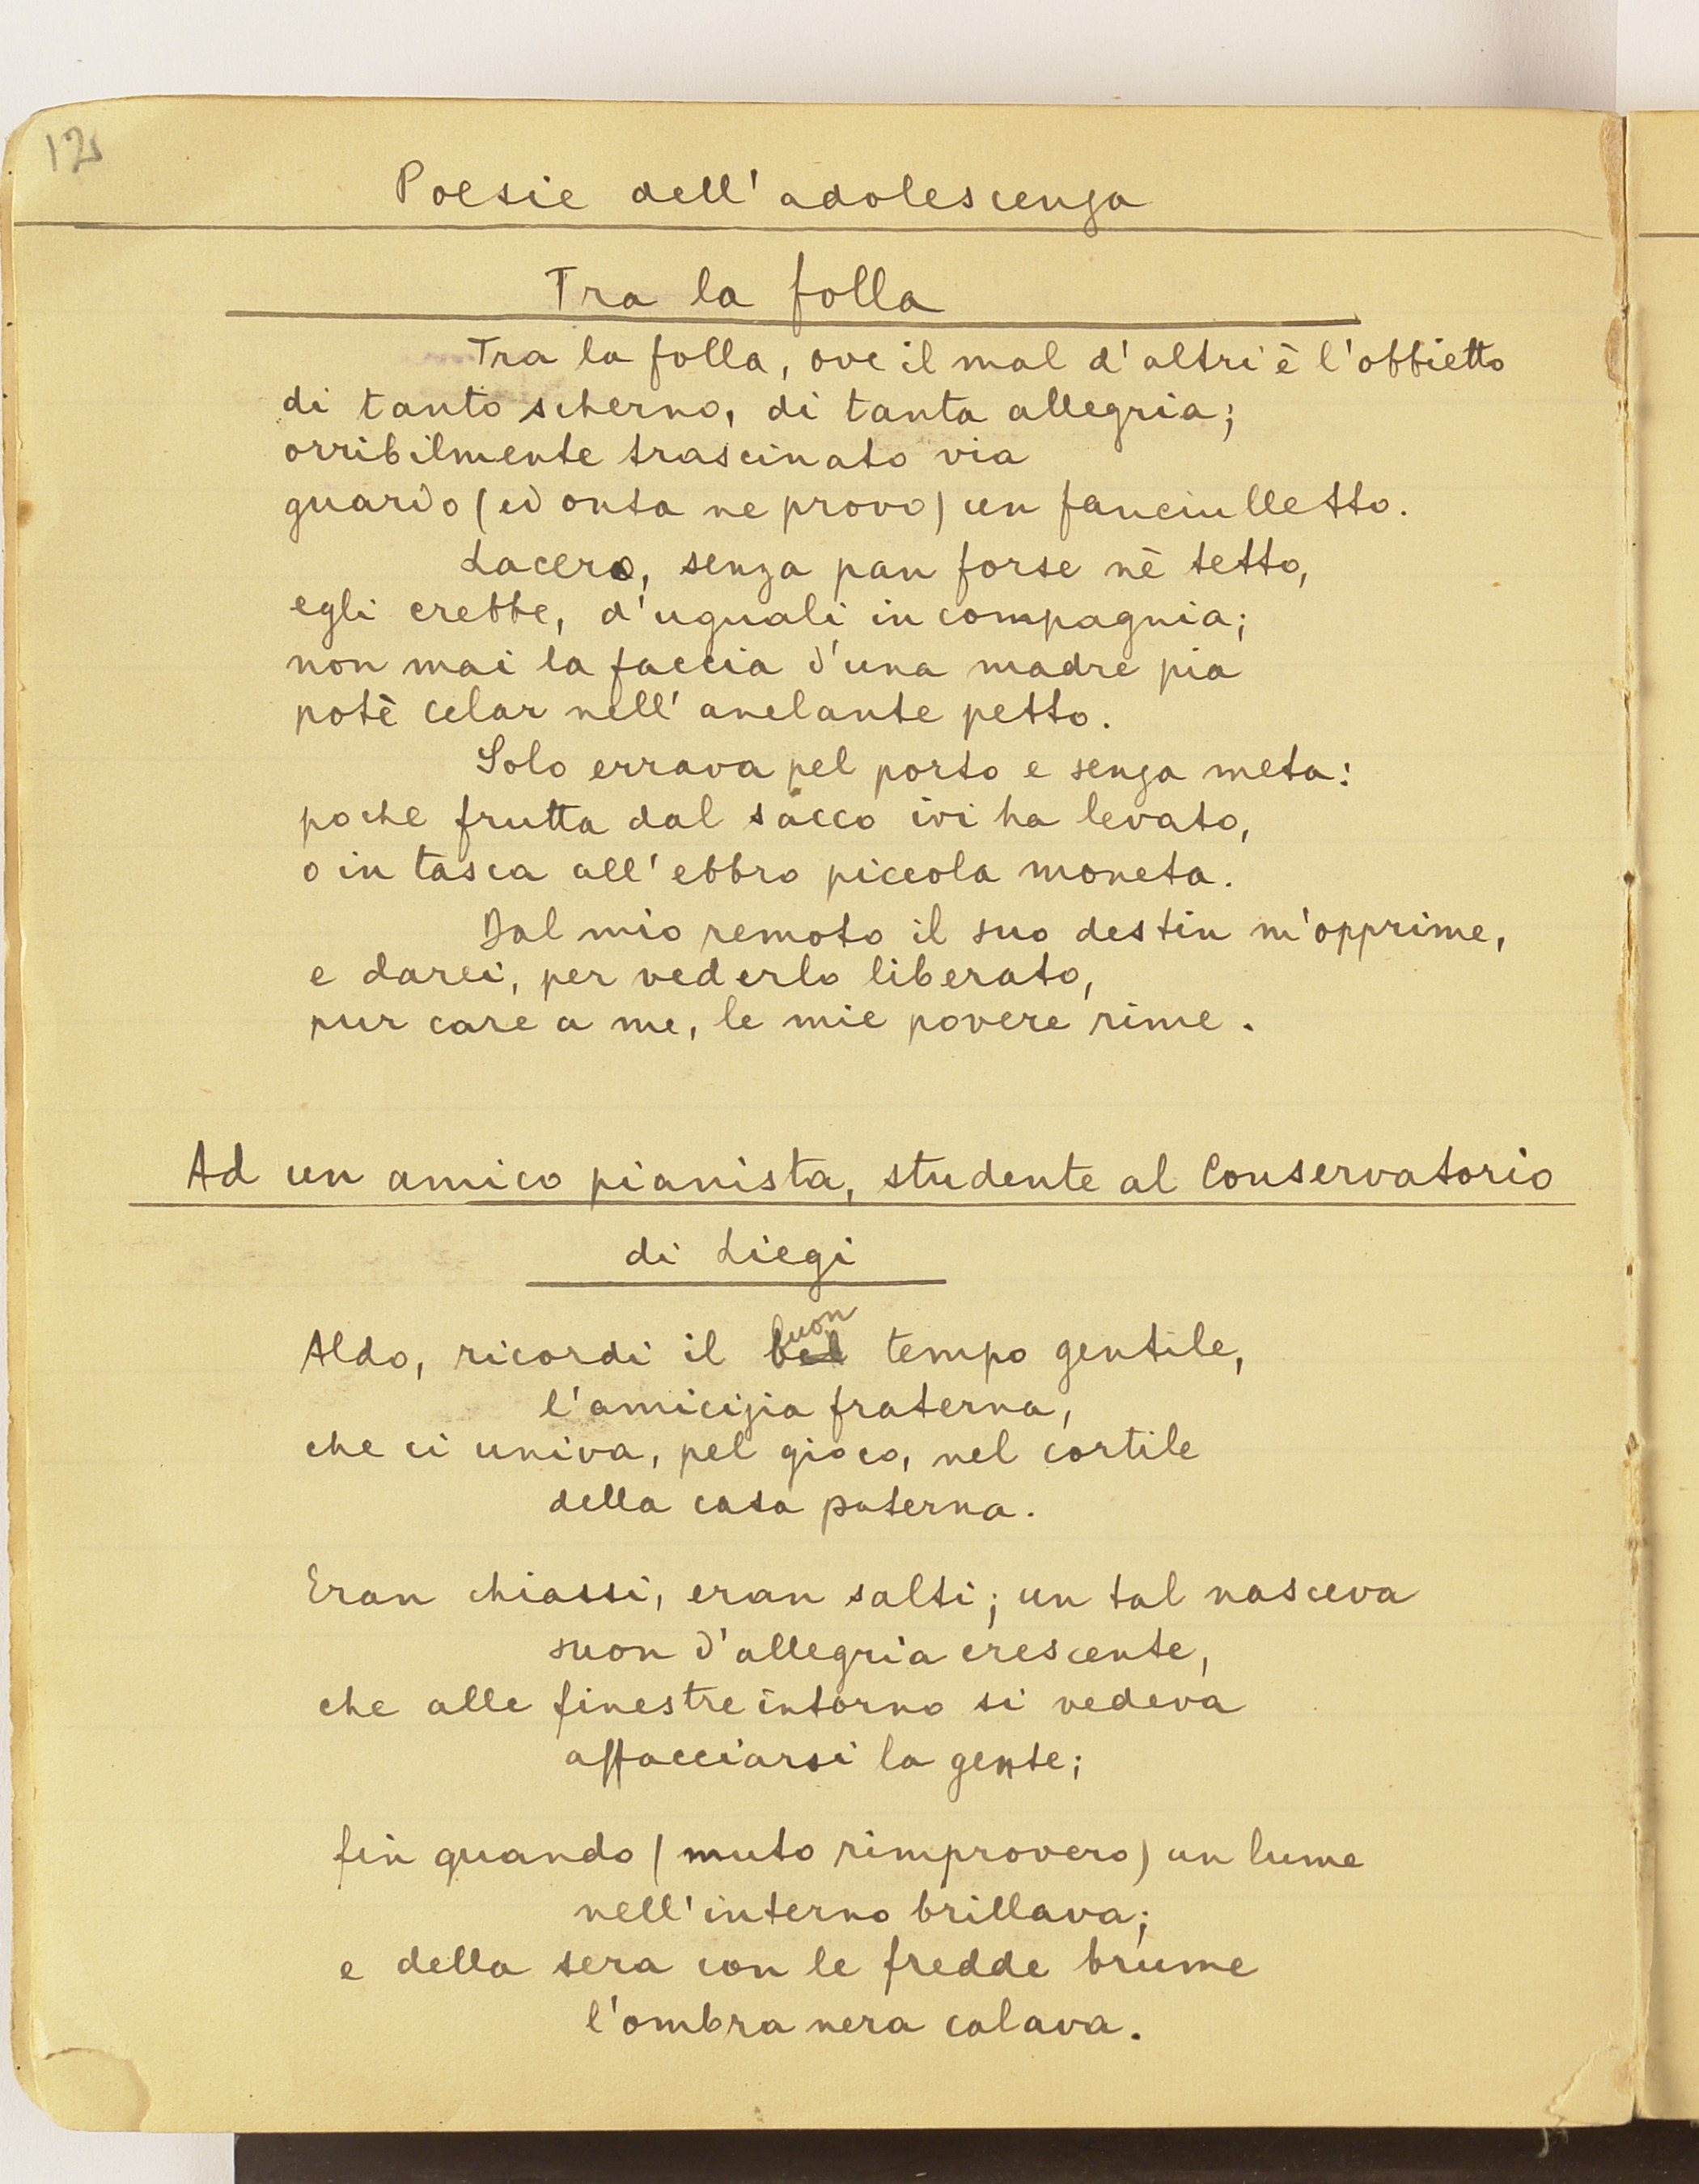 12
Poesie dell'adolescenza
Tra la folla
Tra la folla, ove il mal d'altri è l'obbietto
di tanto scherno, di tanta allegria;
orribilmente trascinato via
guardo (ed onta ne provo) un fanciulletto.
Lacero, senza pan forse nè tetto,
egli crebbe, d'uguali in compagnia;
non mai la faccia d'una madre pia
potè celar nell'anelante petto.
Solo errava pel porto e senza meta:
poche frutta dal sacco ivi ha levato,
o in tasca all'ebbro piccola moneta.
Dal mio remoto il suo destin m'opprime,
e darei, per vederlo liberato,
pur care a me, le mie povere rime.
Ad un amico pianista, studente al Conservatorio
di Liegi
buon
Aldo, ricordi il bel tempo gentile,
l'amicizia fraterna,
che ci univa, pel gioco, nel cortile
della casa paterna.
Eran chiassi, eran salti; un tal nasceva
suon d'allegria crescente,
che alle finestre intorno si vedeva
affacciarsi la gente;
fin quando (muto rimprovero) un lume
nell'interno brillava;
e della sera con le fredde brume
l'ombra nera calava.